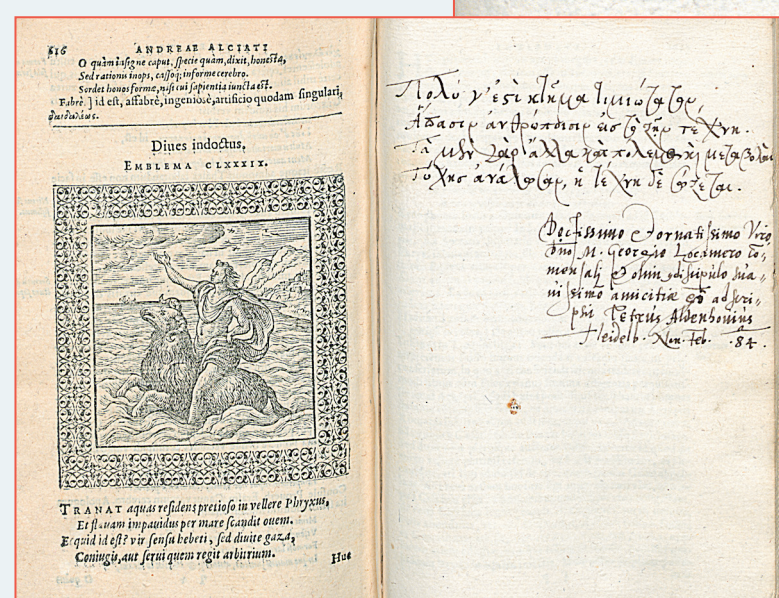 616 ANDREAE ALCIATI
O quàm insigne caput, specie quàm, dixit, honesta,
Sed rationis inops, cassoq́; informe cerebro.
Sordet honos formę, nisi cui sapientia iuncta est.
Fabrè.] id est, affabrè, ingeniosè, artificio quodam singulari,
Diues indoctus,
EMBLEMA CLXXXIX.
TRANAT aquas residens pretioso in vellere Phryxus,
Et flauam impauidus per mare scandit ouem.
Ecquid id est? vir sensu hebeti, sed diuite gaza,
Coniugis, aut serui quem regit arbitrium.
Huc
Πολύ γ' ἐστὶ κτῆμα τιμιώτατον,
Ἅπασιν ἀνθρώποισιν εἰς τὸ ζῆν τέχνη.
Τὰ μὲν γὰρ ἄλλα καὶ πόλεμος καὶ μεταβολαὶ
Τύχης ἀνάλωσαν, ἡ τέχνη δὲ σώζεται.
Doctissimo & ornatissimo Viro
Dno M. Georgio Locamero com-
mensali & olim discipulo sua-
uissimo amicitiæ adscri-
psit Petrus Aldenhouius
Heidelb. Non. Feb. 84.